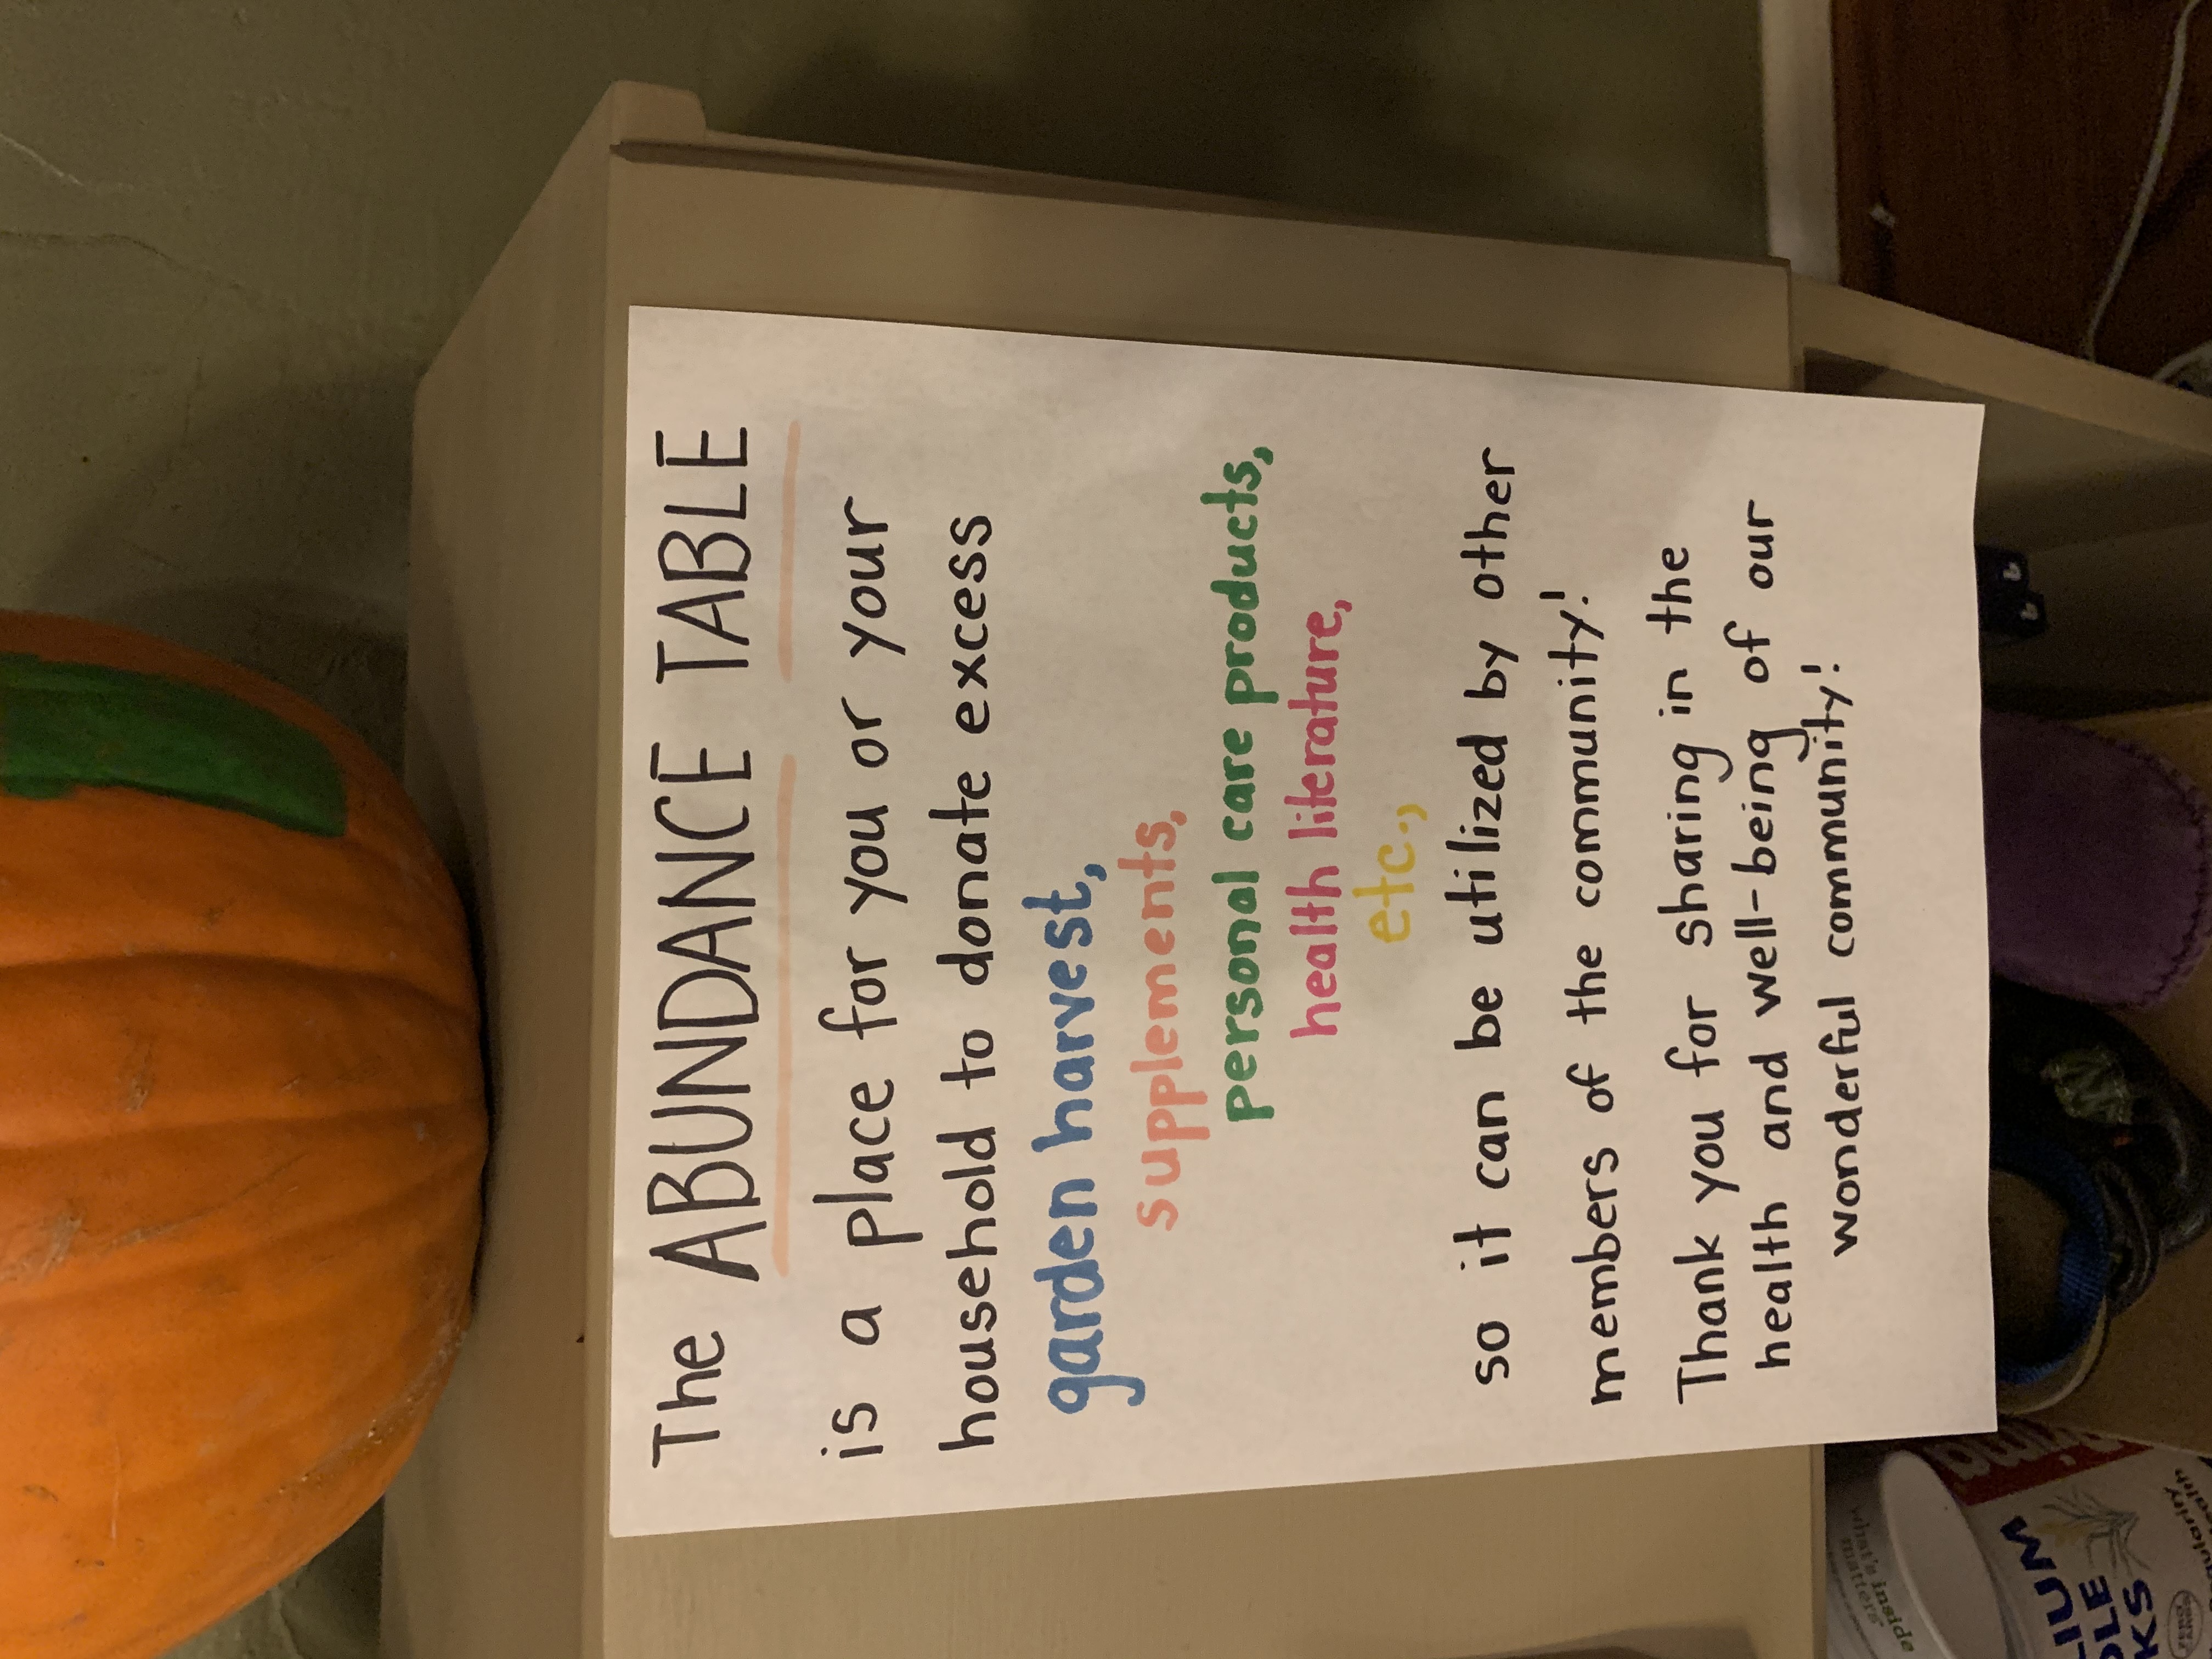 The ABUNDANCE TABLE
is a place for you or your
household to donate excess
garden harvest,
supplements,
personal care products,
health literature,
etc.,
so it can be utilized by other
members of the community!
Thank you for sharing in the
health and well-being of our
wonderful community!
what's inside
matters
ZERO
CARBS